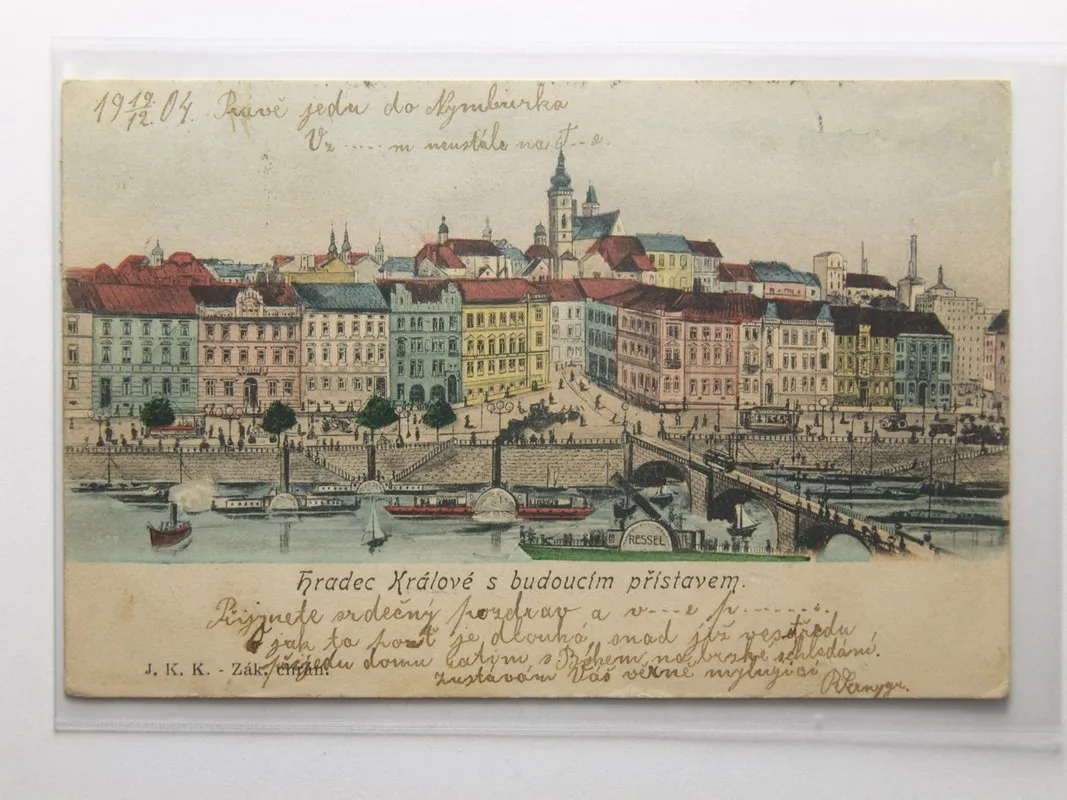 19 19/12 04. Pravě jedu do Nymburka
Vz ..... m neustále na T--e.
RESSEL
Hradec Králové s budoucím přístavem.
Přijmete srdečný pozdrav a v---e p.......:
jak ta pouť je dlouhá, snad již ve středu
přijedu domu zatim s Bohem na brzké shledání.
J. K. K. - Zák. chrán.
zustávám Váš věrně milující